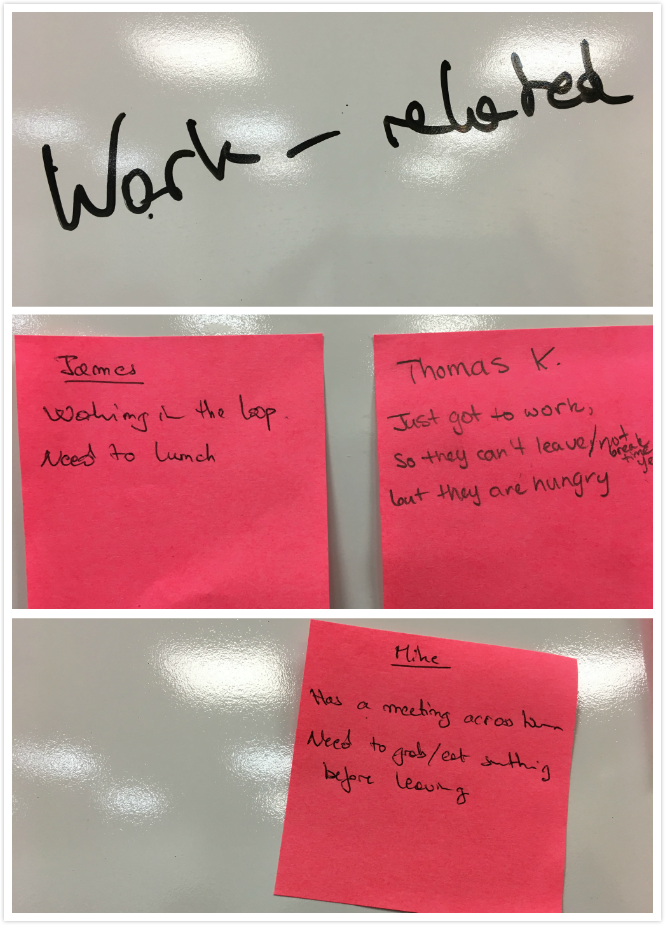 Work - related
James
Working in the loop.
Need to lunch
Thomas K.
Just got to work,
so they can't leave/not
break
time
ye
but they are hungry
Mike
Has a meeting across town
Need to grab/eat somthing
before leaving